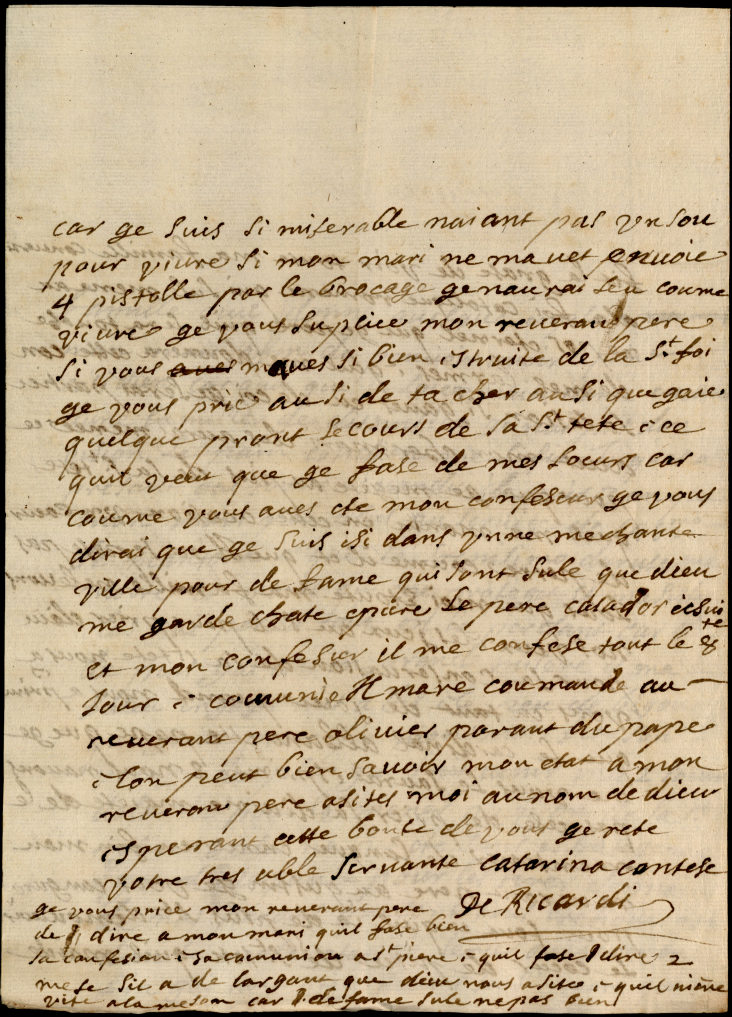 car ge suis si miserable naiant pas vn sou
pour vivre si mon mari ne mauet envoie
4 pistolle par le brocage genaurai seu coume
vivre ge vous suplice mon reueran pere
si vous aues maues si bien istruite de la St foi
ge vous prie ausi de tacher ausi que gaie
quelque pront secours de sa St tete i ce
quil veut que ge fase de mes soeurs car
coume vous aues ete mon confeseur ge vous
dirai que ge suis isi dans vnne mechante
ville pour de fame qui sont sule que dieu
me garde chate epure le pere casador iesuite
et mon confeseur il me confese tout le 8
jour i comunie mare coumande au
reuerant pere olivier parant du pape
i lon peut bien savoir mon etat a mon
reueran pere asites moi au nom de dieu
isperant cette bonte de vous ge rete
votre tres uble servante catarina contese
De Ricardi
ge vous price mon reuerant pere
de dire a mon mari quil fase bien
sa confesion i sa comunion a St piere i quil fase dire 2
mese sil a de largant que dieu nous asite i quil
vite a la meson car de fame sule ne pas bien